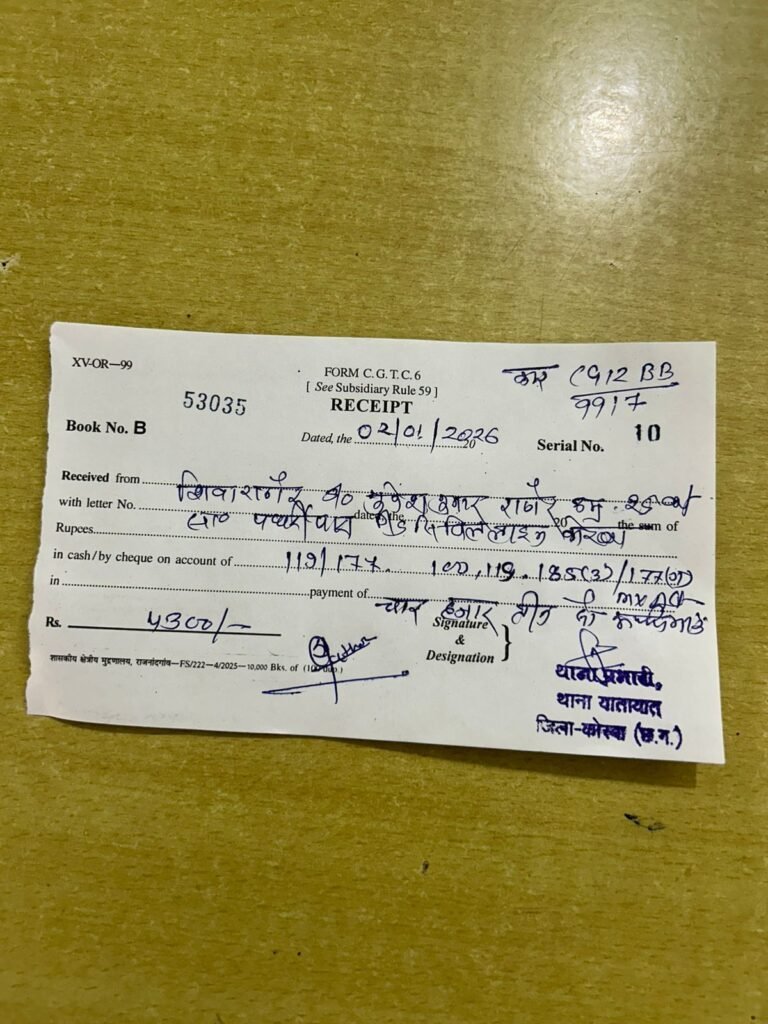 XV-OR—99
FORM C. G. T. C. 6
[ See Subsidiary Rule 59 ]
RECEIPT
कार CG12 BB
9917
53035
Book No. B
Dated, the 02/01/2026 20
Serial No. 10
Received from शिवा राठौर
with letter No. dated the 20 the sum of
Rupees सा० पथर्रीपारा सिविल लाइन कोरबा
in cash/by cheque on account of 119/177. 119. 185(3)/177(
in payment of चार हजार तीन सौ
MV Act
Rs. 4300/-
Signature
&
Designation
शासकीय क्षेत्रीय मुद्रणालय, राजनांदगांव—FS/222—4/2025—10,000 Bks. of (100
थाना प्रभारी,
थाना यातायात
जिला-कोरबा (छ.ग.)